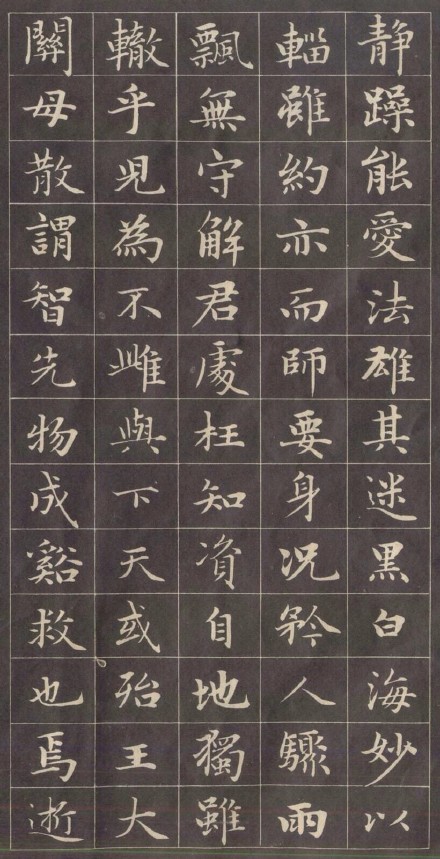 静躁能愛法雄其迷黑白海妙以
輜雖約亦而師要身況矜人驟雨
飄無守解君處枉知資自地獨雖
轍乎兒為不雌與下天或殆王大
關母散謂智先物成谿救也焉逝